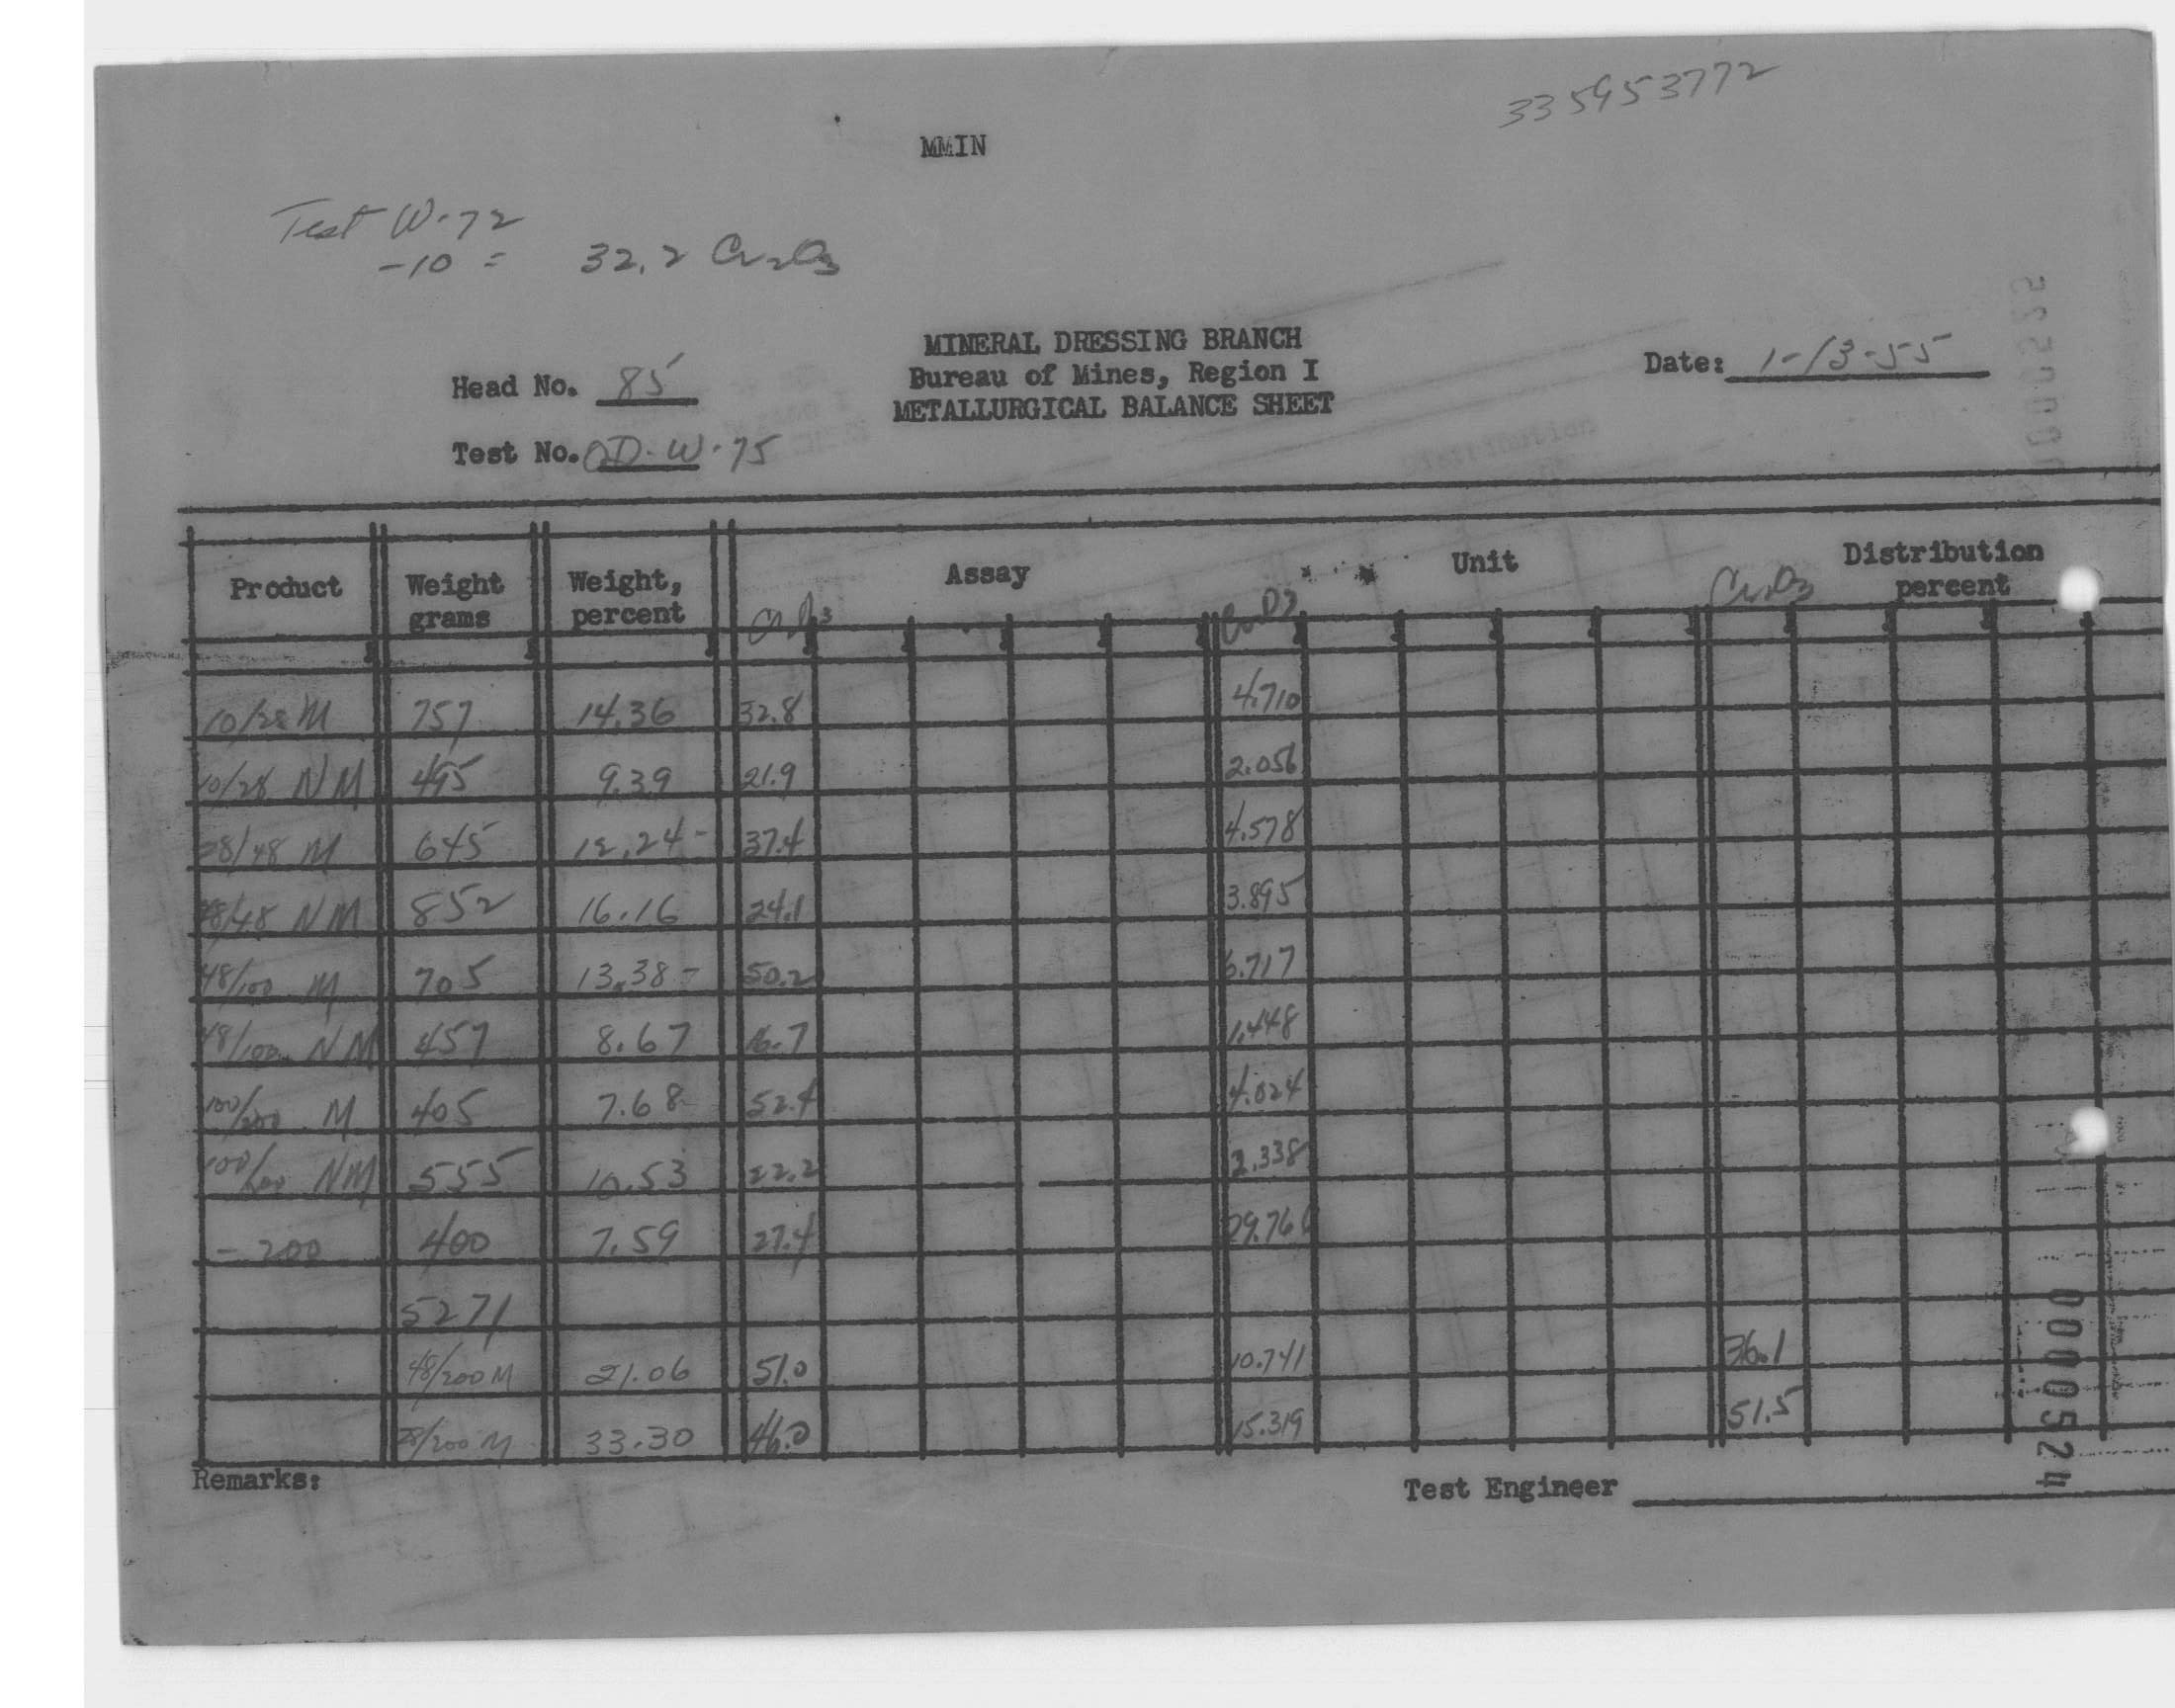 335953772
MMIN
Test W-72
-10 = 32.2 Cr2O3
MINERAL DRESSING BRANCH
Head No. 85 Bureau of Mines, Region I Date: 1-13-55
METALLURGICAL BALANCE SHEET
Test No. QD-W-75
Product Weight grams Weight, percent Assay Unit Distribution percent
Cr2O3 Cr2O3 Cr2O3
10/28 M 757 14.36 32.8 4.710
10/28 NM 495 9.39 21.9 2.056
28/48 M 645 12.24- 37.4 4.578
28/48 NM 852 16.16 24.1 3.895
48/100 M 705 13.38- 50.2 6.717
48/100 NM 457 8.67 16.7 1.448
100/200 M 405 7.68- 52.4 4.024
100/200 NM 555 10.53 22.2 2.338
-200 400 7.59 27.4 29.766
5271
48/200 M 21.06 51.0 10.741 36.1
28/200 M 33.30 46.0 15.319 51.5
Remarks: Test Engineer
000524
000525